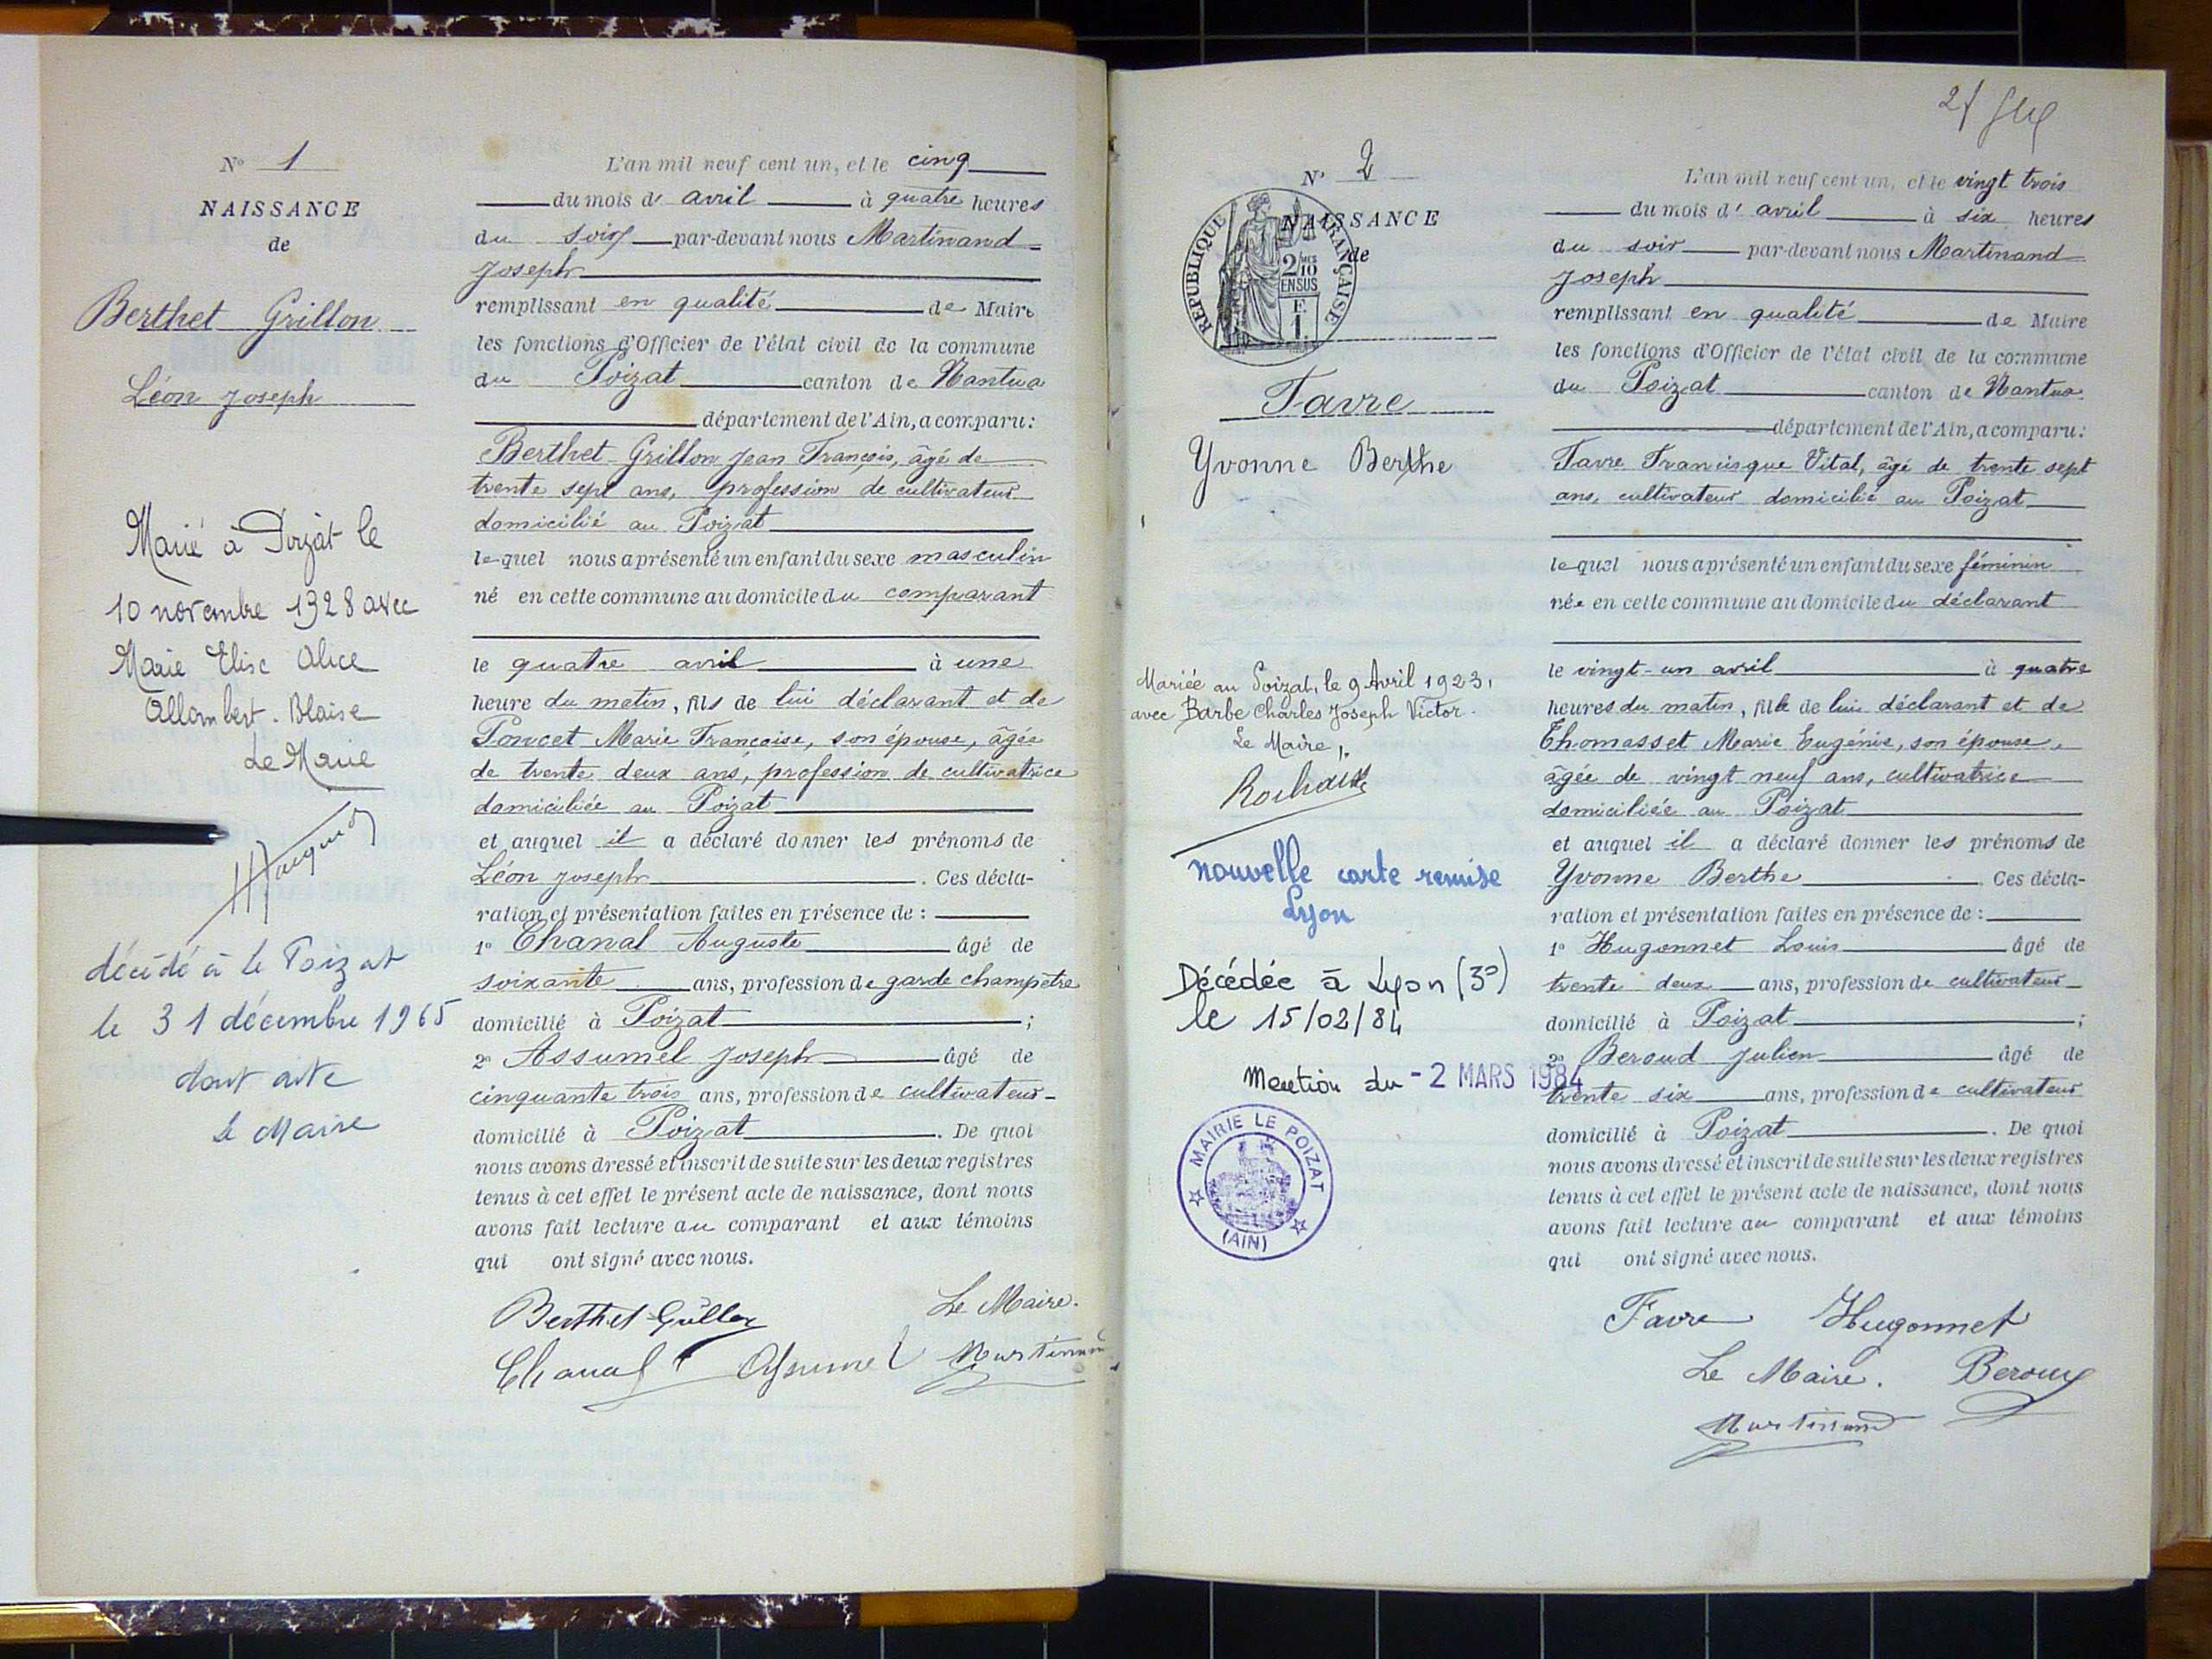 N° 1
NAISSANCE
de
Berthet Grillon
Léon Joseph
Marié à Poizat le
10 novembre 1928 avec
Marie Elise Alice
Allombert-Blaise
Le Maire
décédé à le Poizat
le 31 décembre 1965
dont acte
Le Maire
L'an mil neuf cent un, et le cinq
du mois d' avril à quatre heures
du soir par-devant nous Martinand
Joseph
remplissant en qualité de Maire
les fonctions d'Officier de l'état civil de la commune
du Poizat canton de Nantua
département de l'Ain, a comparu:
Berthet-Grillon Jean François, âgé de
trente sept ans, profession de cultivateur
domicilié au Poizat
lequel nous a présenté un enfant du sexe masculin
né en cette commune au domicile du comparant
le quatre avril à une
heure du matin, fils de lui déclarant et de
Poncet Marie Françoise, son épouse, âgée
de trente deux ans, profession de cultivatrice
domiciliée au Poizat
et auquel il a déclaré donner les prénoms de
Léon Joseph. Ces décla-
ration et présentation faites en présence de :
1° Chanal Auguste âgé de
soixante ans, profession de garde champêtre
domicilié à Poizat ;
2° Assumel Joseph âgé de
cinquante trois ans, profession de cultivateur
domicilié à Poizat. De quoi
nous avons dressé et inscrit de suite sur les deux registres
tenus à cet effet le présent acte de naissance, dont nous
avons fait lecture au comparant et aux témoins
qui ont signé avec nous.
Berthet-Grillon Le Maire.
Chanal Assumel Martinand
2
N° 2
NAISSANCE
de
REPUBLIQUE FRANÇAISE
2/10 MES
EN SUS
F.
1.
Favre
Yvonne Berthe
Mariée au Poizat, le 9 Avril 1923,
avec Barbe Charles Joseph Victor.
Le Maire,
nouvelle carte remise
Lyon
Décédée à Lyon (3°)
le 15/02/84
Mention du - 2 MARS 1984
MAIRIE LE POIZAT
(AIN)
L'an mil neuf cent un, et le vingt trois
du mois d' avril à six heures
du soir par-devant nous Martinand
Joseph
remplissant en qualité de Maire
les fonctions d'Officier de l'état civil de la commune
du Poizat canton de Nantua
département de l'Ain, a comparu:
Favre Francisque Vital, âgé de trente sept
ans, cultivateur domicilié au Poizat
lequel nous a présenté un enfant du sexe féminin
née en cette commune au domicile du déclarant
le vingt-un avril à quatre
heures du matin, fille de lui déclarant et de
Thomasset Marie Eugénie, son épouse,
âgée de vingt neuf ans, cultivatrice
domiciliée au Poizat
et auquel il a déclaré donner les prénoms de
Yvonne Berthe. Ces décla-
ration et présentation faites en présence de :
1° Hugonnet Louis âgé de
trente deux ans, profession de cultivateur
domicilié à Poizat ;
2° Beroud Julien âgé de
trente six ans, profession de cultivateur
domicilié à Poizat. De quoi
nous avons dressé et inscrit de suite sur les deux registres
tenus à cet effet le présent acte de naissance, dont nous
avons fait lecture au comparant et aux témoins
qui ont signé avec nous.
Favre Hugonnet
Le Maire. Beroud
Martinand